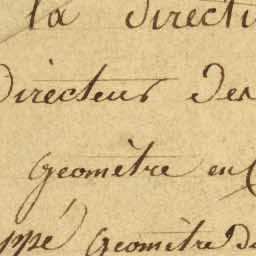 la directi
Directeur des
géomètre en
ppé géomètre De